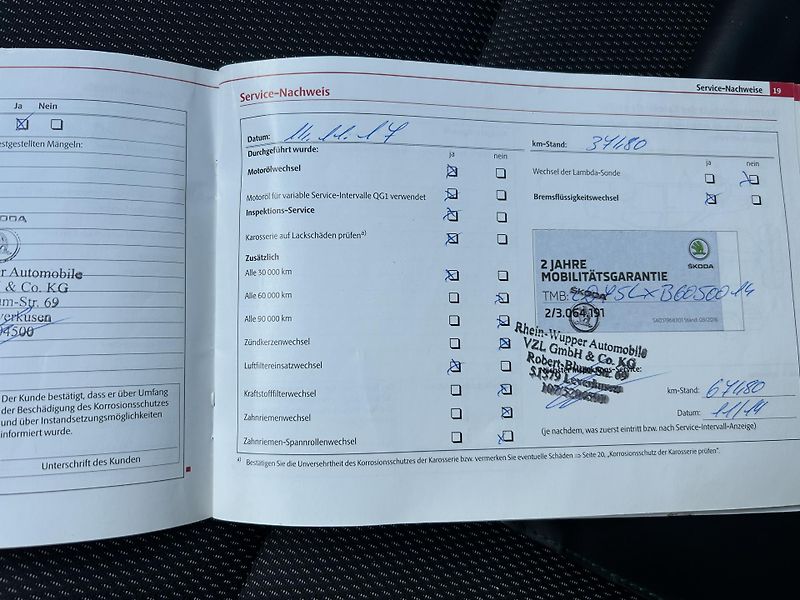 Ja Nein
estgestellten Mängeln:
ŠKODA
per Automobile
H & Co. KG
um-Str. 69
verkusen
04500
Der Kunde bestätigt, dass er über Umfang
der Beschädigung des Korrosionsschutzes
und über Instandsetzungsmöglichkeiten
informiert wurde.
Unterschrift des Kunden
Service-Nachweis
Service-Nachweise 19
Datum: 11.11.17
km-Stand: 37480
Durchgeführt wurde: ja nein
Motorölwechsel
Motoröl für variable Service-Intervalle QG1 verwendet
Inspektions-Service
Karosserie auf Lackschäden prüfen a)
Zusätzlich
Alle 30 000 km
Alle 60 000 km
Alle 90 000 km
Zündkerzenwechsel
Luftfiltereinsatzwechsel
Kraftstofffilterwechsel
Zahnriemenwechsel
Zahnriemen-Spannrollenwechsel
ja nein
Wechsel der Lambda-Sonde
Bremsflüssigkeitswechsel
ŠKODA
2 JAHRE
MOBILITÄTSGARANTIE
TMB:
2/3.064.191
SAD31968301 Stand: 08/2016
ŠKODA
Rhein-Wupper Automobile
VZL GmbH & Co. KG
Robert-Blum-Str. 69
51379 Leverkusen
Service:
km-Stand: 67480
Datum: 11/19
(je nachdem, was zuerst eintritt bzw. nach Service-Intervall-Anzeige)
a) Bestätigen Sie die Unversehrtheit des Korrosionsschutzes der Karosserie bzw. vermerken Sie eventuelle Schäden ⇒ Seite 20, „Korrosionsschutz der Karosserie prüfen“.